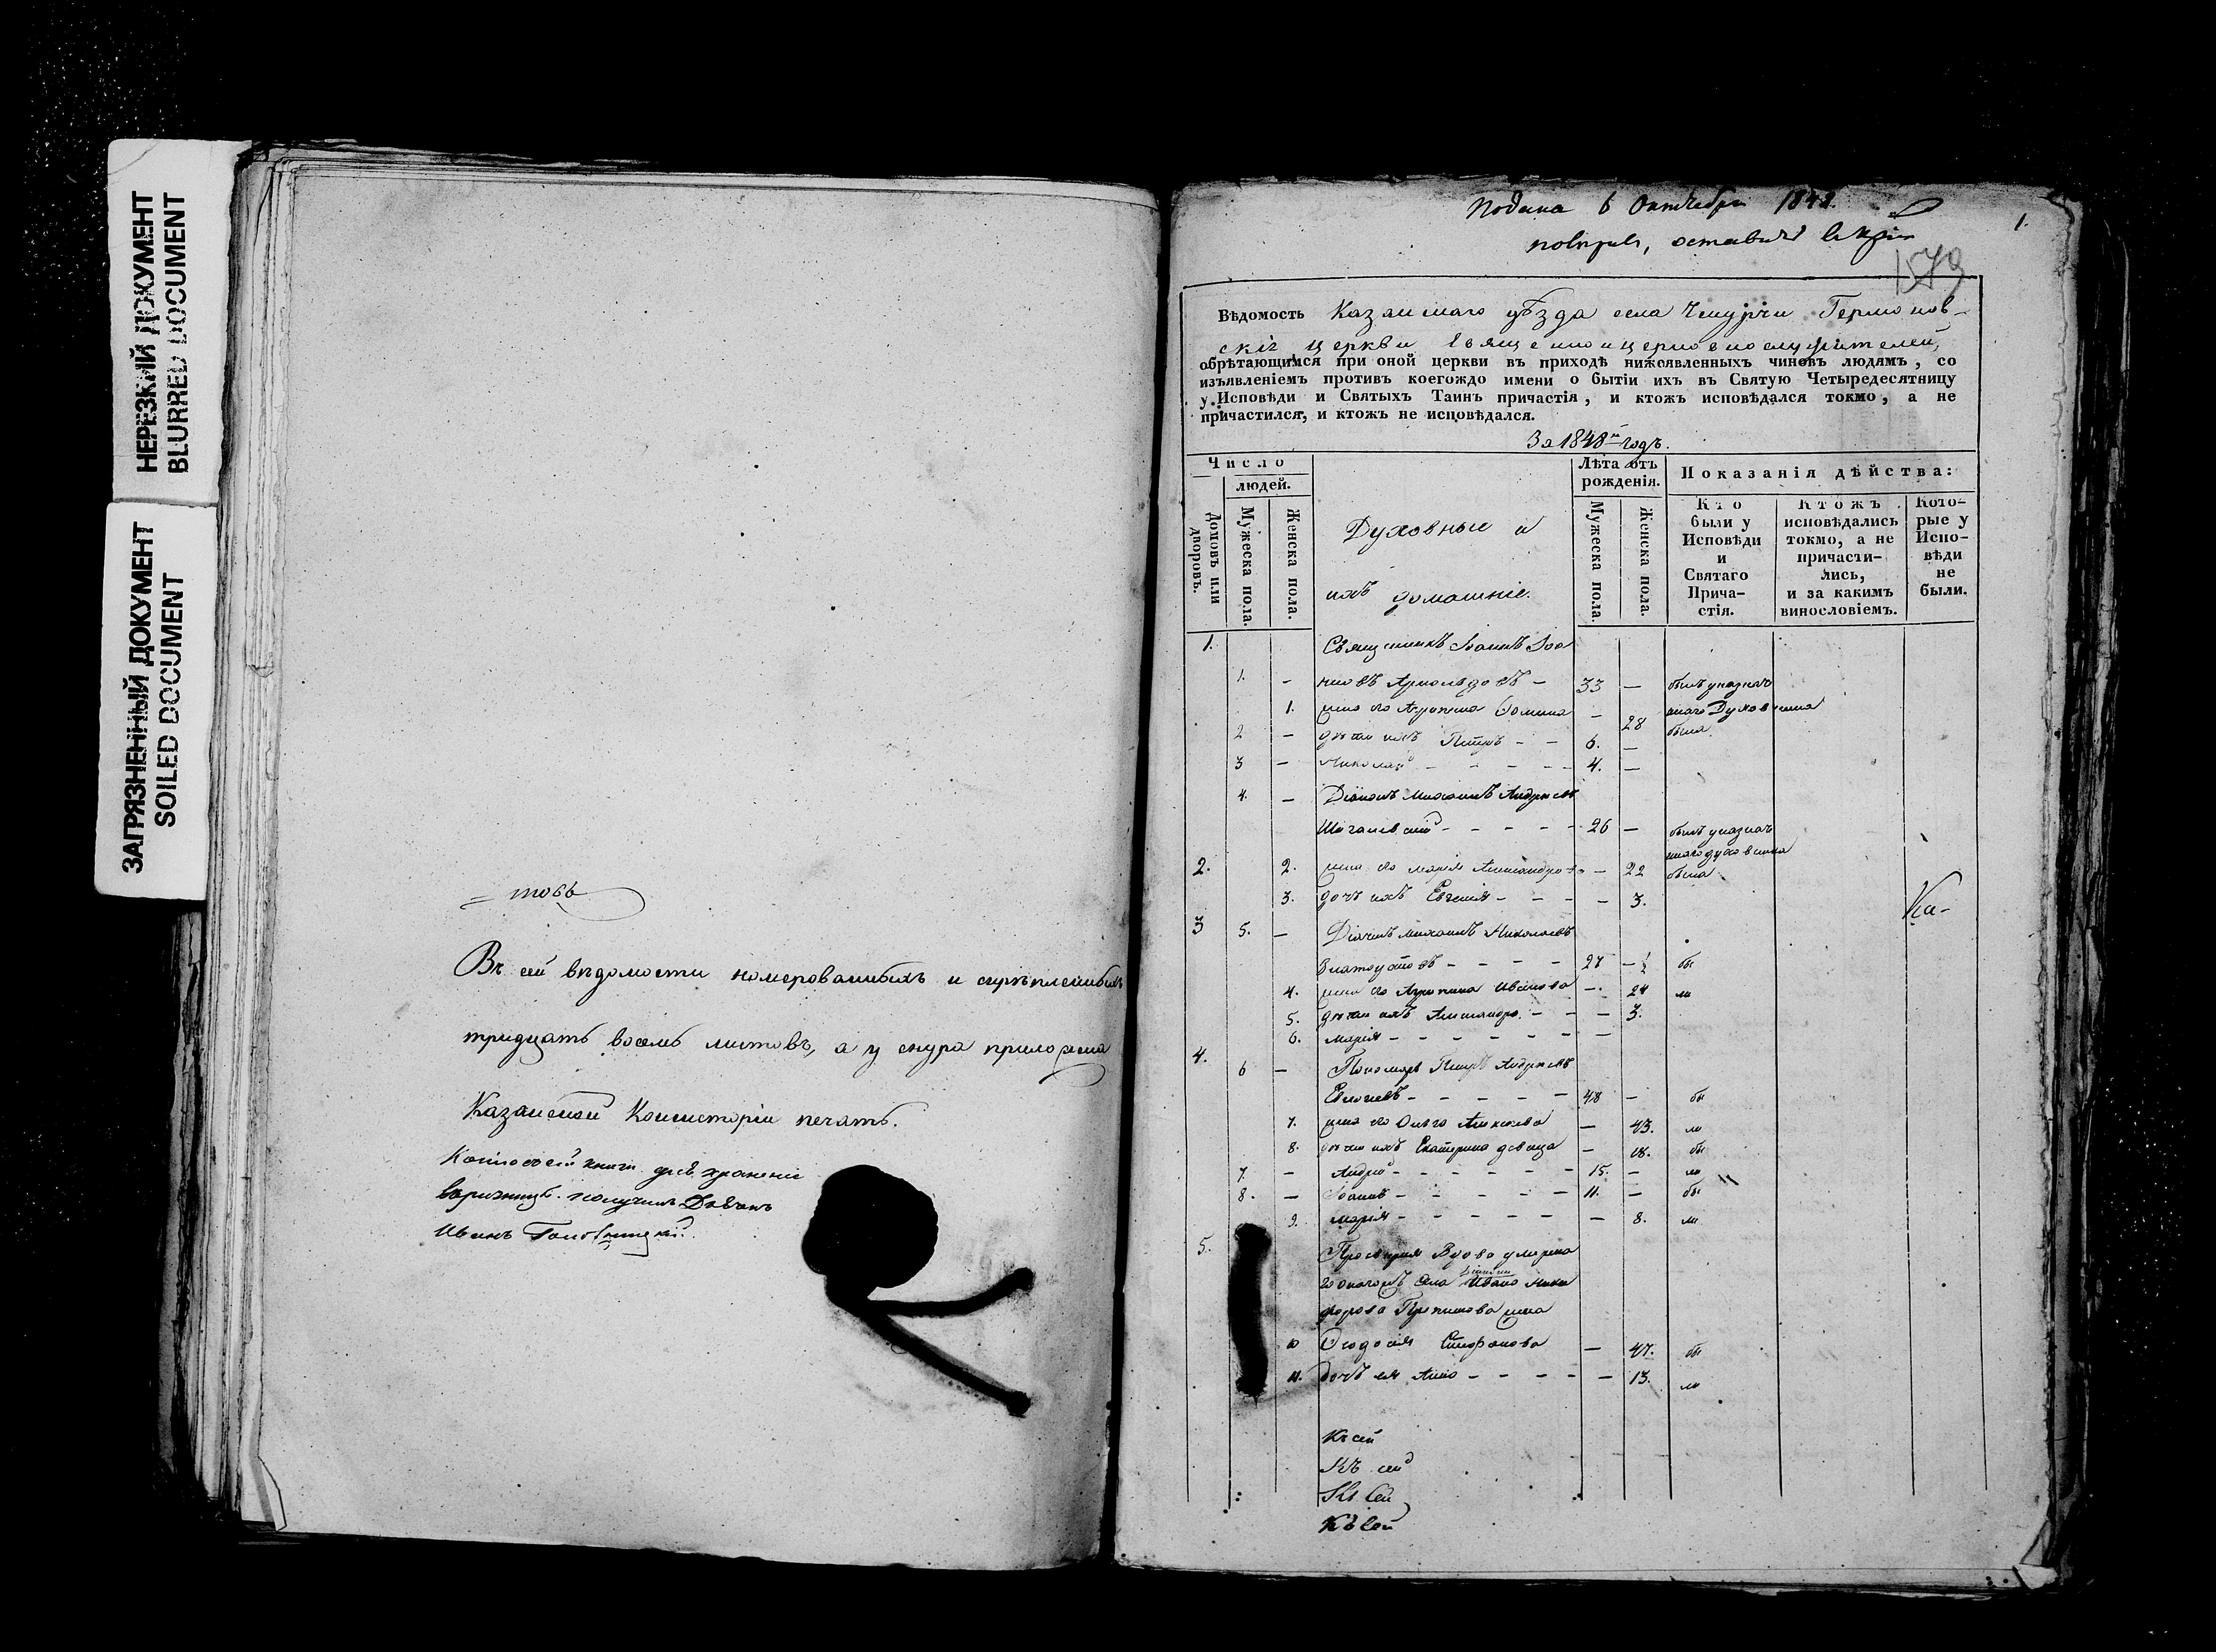 НЕРЕЗКИЙ ДОКУМЕНТ
BLURRED DOCUMENT
ЗАГРЯЗНЕННЫЙ ДОКУМЕНТ
SOILED DOCUMENT
= товъ
Въ сей вѣдомости номерованныхъ и скрѣпленныхъ
тридцать восемь листовъ, а у снура приложена
Казанской Консисторіи печать.
книги для храненія
получилъ Дьяконъ
Иванъ
Подана 6 Октября 1848.
1.
1579
Вѣдомость Казанскаго уѣзда села Чемурчи Гермонов-
скія церкви священноцерковнослужителей,
обрѣтающимся при оной церкви въ приходѣ нижеявленныхъ чиновъ людямъ, со
изъявленіемъ противъ коегождо имени о бытіи ихъ въ Святую Четыредесятницу
у Исповѣди и Святыхъ Таинъ причастія, и ктожъ исповѣдался токмо, а не
причастился, и ктожъ не исповѣдался.
За 1848й годъ.
Число
людей.
Домовъ или дворовъ.
Мужеска пола.
Женска пола.
Духовные и
ихъ домашніе.
Лѣта отъ рожденія.
Мужеска пола.
Женска пола.
Показанія дѣйства:
Кто были у Исповѣди и Святаго Причастія.
Ктожъ исповѣдались токмо, а не причастились, и за какимъ винословіемъ.
Которые у Исповѣди не были.
1. Священникъ Іоаннъ Іоа
1. – нновъ – 33 – былъ у назнач
1. жена его – 28 наго Духовника
2 – дѣти ихъ Петръ – – 6. – была
3 – Николай – – – – – 4. –
4. – Діаконъ Михаилъ Андреевъ
– – – – 26 – былъ у назнач
наго духовника
2. 2. жена его Марія Александрова – 22 была
3. дочь ихъ Евгенія – – – – 3.
Ка-
3 5. – Діачекъ Михаилъ Николаевъ
Златоустовъ – – – – 27 – бы
4. жена его Иванова – 24 ли
5. дѣти ихъ Александра – – – 3.
6. Марія – – – – – – –
4. 6 – Пономарь Петръ Андреевъ
– – – – – 48 – бы
7. жена его Ольга – 43. ли
8. дѣти ихъ Екатерина девица – 18. бы
7. – Андрей – – – – – – 15. – ли
8. – Іоаннъ – – – – – 11. – бы
9. Марія – – – – – – 8. ли
5. Просвирня Вдова умерша
го села Ивана Ники
форова жена
10 Ѳеодосія Стефанова – 47. бы
11. дочь ея Анна – – – – – 13. ли
Къ сей
Къ сей
Къ сей
Къ сей